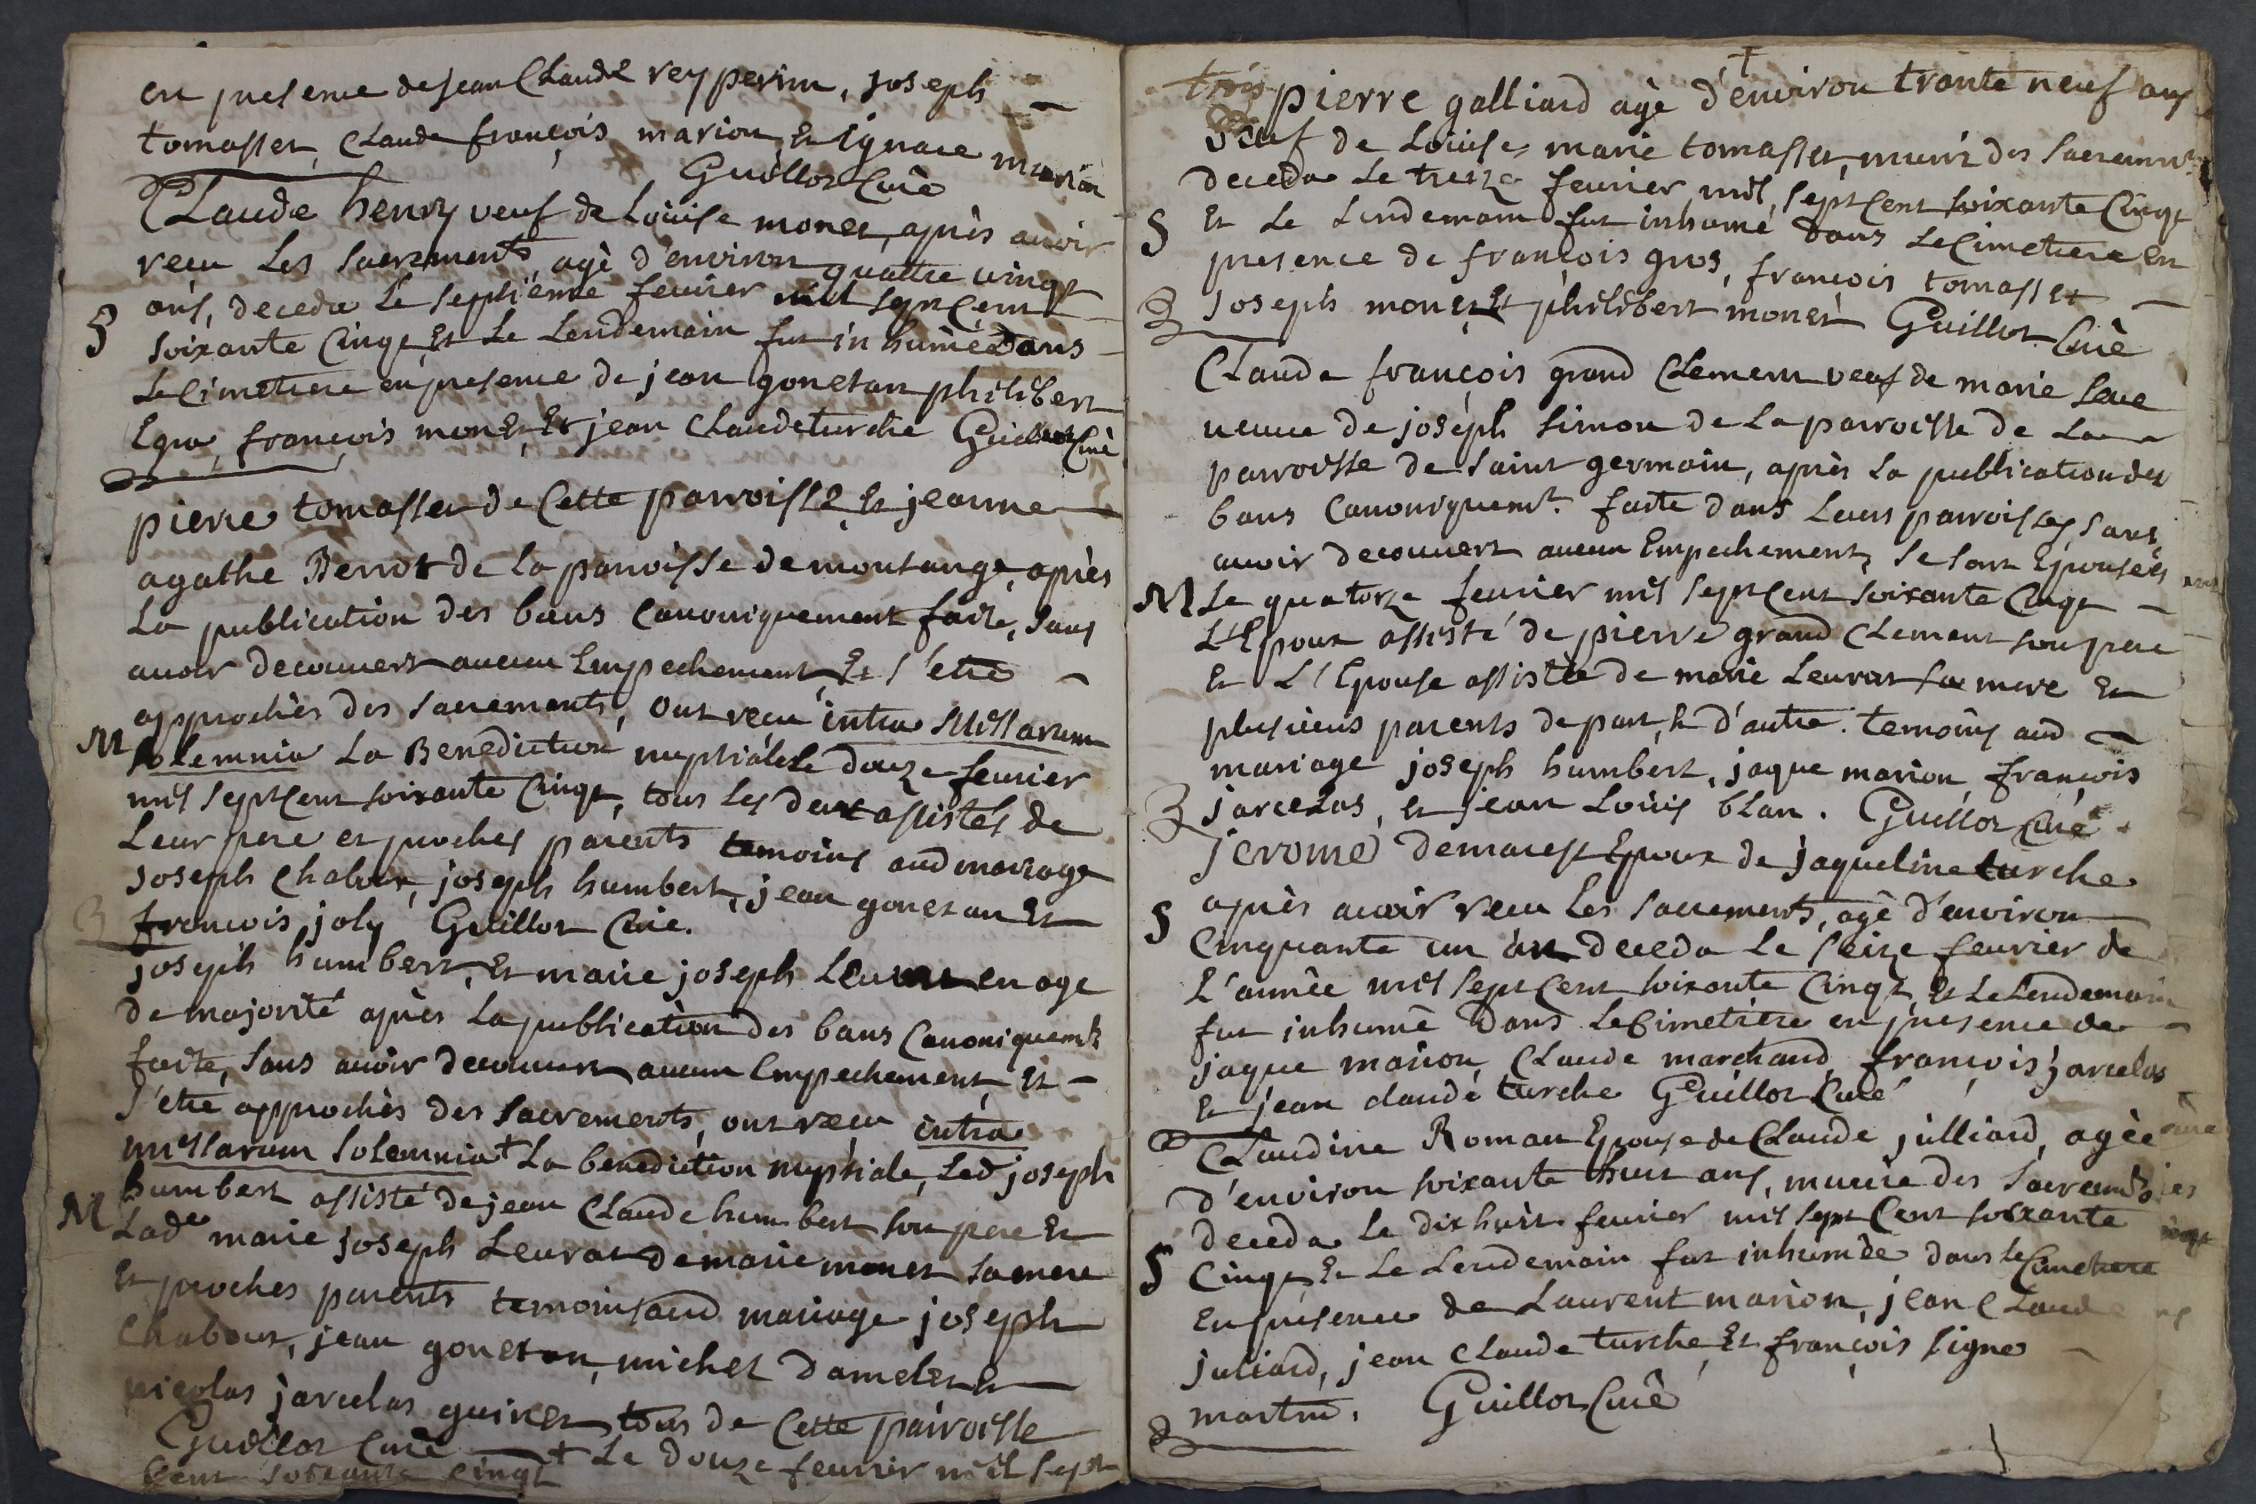 en presence de jean Claude rey perrin, joseph
tomasset, Claude françois marion, Et Ignace marion
Guillot Curé
Claude henry veuf de Loüise monet, après avoir
recu Les sacrements, agé d'environ quattre vingt
ans, deceda le septième fevrier mil sept Cent
S
soixante Cinqt, Et Le Lendemain fut inhumé Dans
Le Cimetiere en presence de jean gonetan philibert
françois monet, Et jean Claude turche Guillot Curé
pierre tomasset de Cette parroisse, Et jeanne
agathe Berrot de La parroisse de montange, après
La publication des bans Canoniquement faite, sans
avoir decouvert aucun Empechement, Et s'etre
approchés des sacrements, ont recu intra Missarum
M
solemnia La Benediction nuptiale Le douze fevrier
mil sept Cent soixante Cinqt, tous Les deux assistés de
Leur pere et proches parents temoins aud mariage
joseph Chabour, joseph humbert, jean gonetan Et
francois joly Guillot Curé.
joseph humbert, Et marie joseph Levrat en age
de majorité après La publication des bans Canoniquemt
faite, sans avoir decouvert aucun Empechement, Et
s'etre approchés des sacrements, ont recu intra
missarum solemnia + La benediction nuptiale, Led joseph
humbert assisté de jean Claude humbert son pere Et
M
Lade marie joseph Levrat de marie monet sa mere
Et proches parents temoins aud mariage joseph
Chabour, jean gonetan, michel Damelet Et
nicolas jarcelas guiret tous de Cette parroisse
Guillot Curé + Le douze fevrier mil sept
Cent soixante cinqt
+
trois
pierre galliard agé d'environ trante neuf ans
veuf de Loüise marie tomasset, muni des sacremnts
deceda Le treize fevrier mil sept Cent soixante Cinqt
S
Et Le Lendemain fut inhumé dans Le Cimetiere En
presence de françois gros, françois tomasset
joseph monet Et philibert monet Guillot Curé
Claude françois grand Clement veuf de marie
veuve de joseph simon de La parroisse de La
parroisse de saint germain, après La publication des
bans Canoniquemt. faite dans Leurs parroisses, sans
avoir decouvert aucun Empechement, se sont Epousés
M
Le quatorze fevrier mil sept Cent soixante Cinqt
L'Epoux assisté de pierre grand Clement son pere
Et L'Epouse assistée de marie Levrat sa mere Et
plusieurs parents de part, Et d'autre. temoins aud
mariage joseph humbert, jaque marion, françois
jarcelas, et jean Loüis blan. Guillot Curé.
jerome Demarest Epoux de jaqueline turche
après avoir recu Les sacrements, agé d'environ
S
Cinquante un an deceda Le seize fevrier de
L'année mil sept Cent soixante Cinqt, Et Le Lendemain
fut inhumé Dans Le Cimetiere en presence de
jaque marion, Claude marchand, françois jarcelas
Et jean claude turche Guillot Curé
Claudine Roman Epouse de Claude julliard, agée
d'environ soixante huit ans, munie des sacremts
deceda Le dix huit fevrier mil sept Cent soixante
S
Cinqt, Et Le Lendemain fut inhumée dans le Cimetiere
En presence de Laurent marion, jean Claude
juliard, jean Claude turche, Et françois signe
martin. Guillot Curé